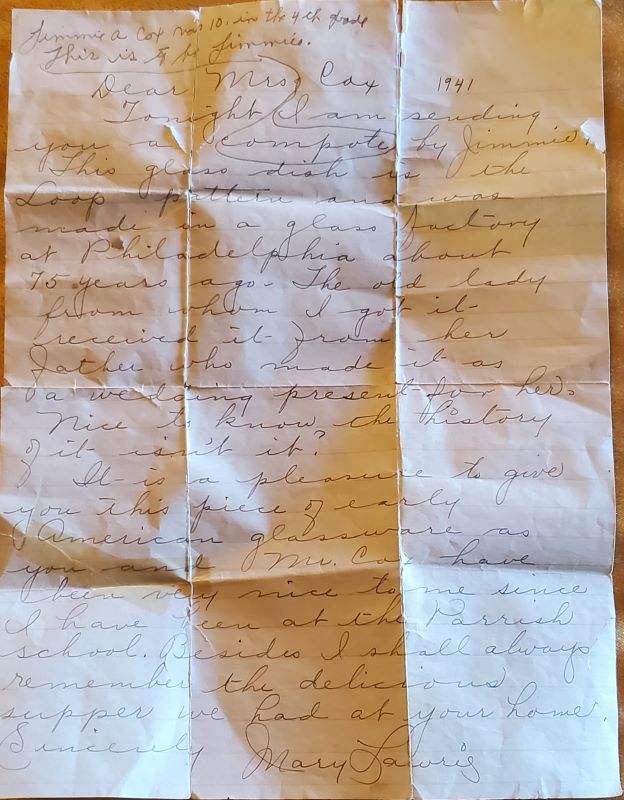 Jimmie A Cox was 10, in the 4th grade
This is to be Jimmies.
Dear Mrs Cox 1941
Tonight I am sending
you a compote by Jimmie.
This glass dish is the
Loop pattern and was
made in a glass factory
at Philadelphia about
75 years ago. The old lady
from whom I got it
received it from her
father who made it as
a wedding present for her.
Nice to know the history
of it isn't it?
It is a pleasure to give
you this piece of early
American glassware as
you and Mr. Cox have
been very nice to me since
I have been at the Parrish
school. Besides I shall always
remember the delicious
supper we had at your home.
Sincerely Mary